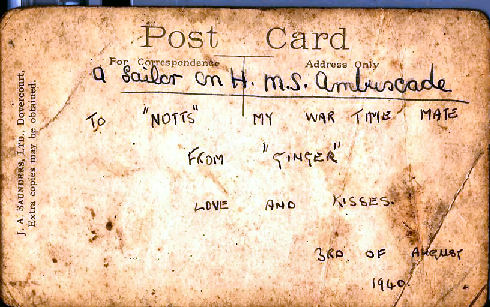 Post Card
For Correspondence Address Only
a Sailor on H.M.S. Ambuscade
To "NOTTS" MY WAR TIME MATE
FROM "GINGER"
LOVE AND KISSES.
3RD OF AUGUST
1940
J. A. SAUNDERS, LTD., Dovercourt.
Extra copies may be obtained.